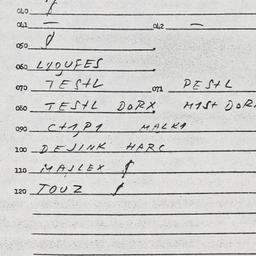 040
041 — 042 —
050
060 LYQUFES
070 TESTL 071 PESTL
080 TESTL DORX MIST DOR
090 C+1,P1 MALK1
100 DEJINK HARC
110 MAJLEX
120 TOUZ